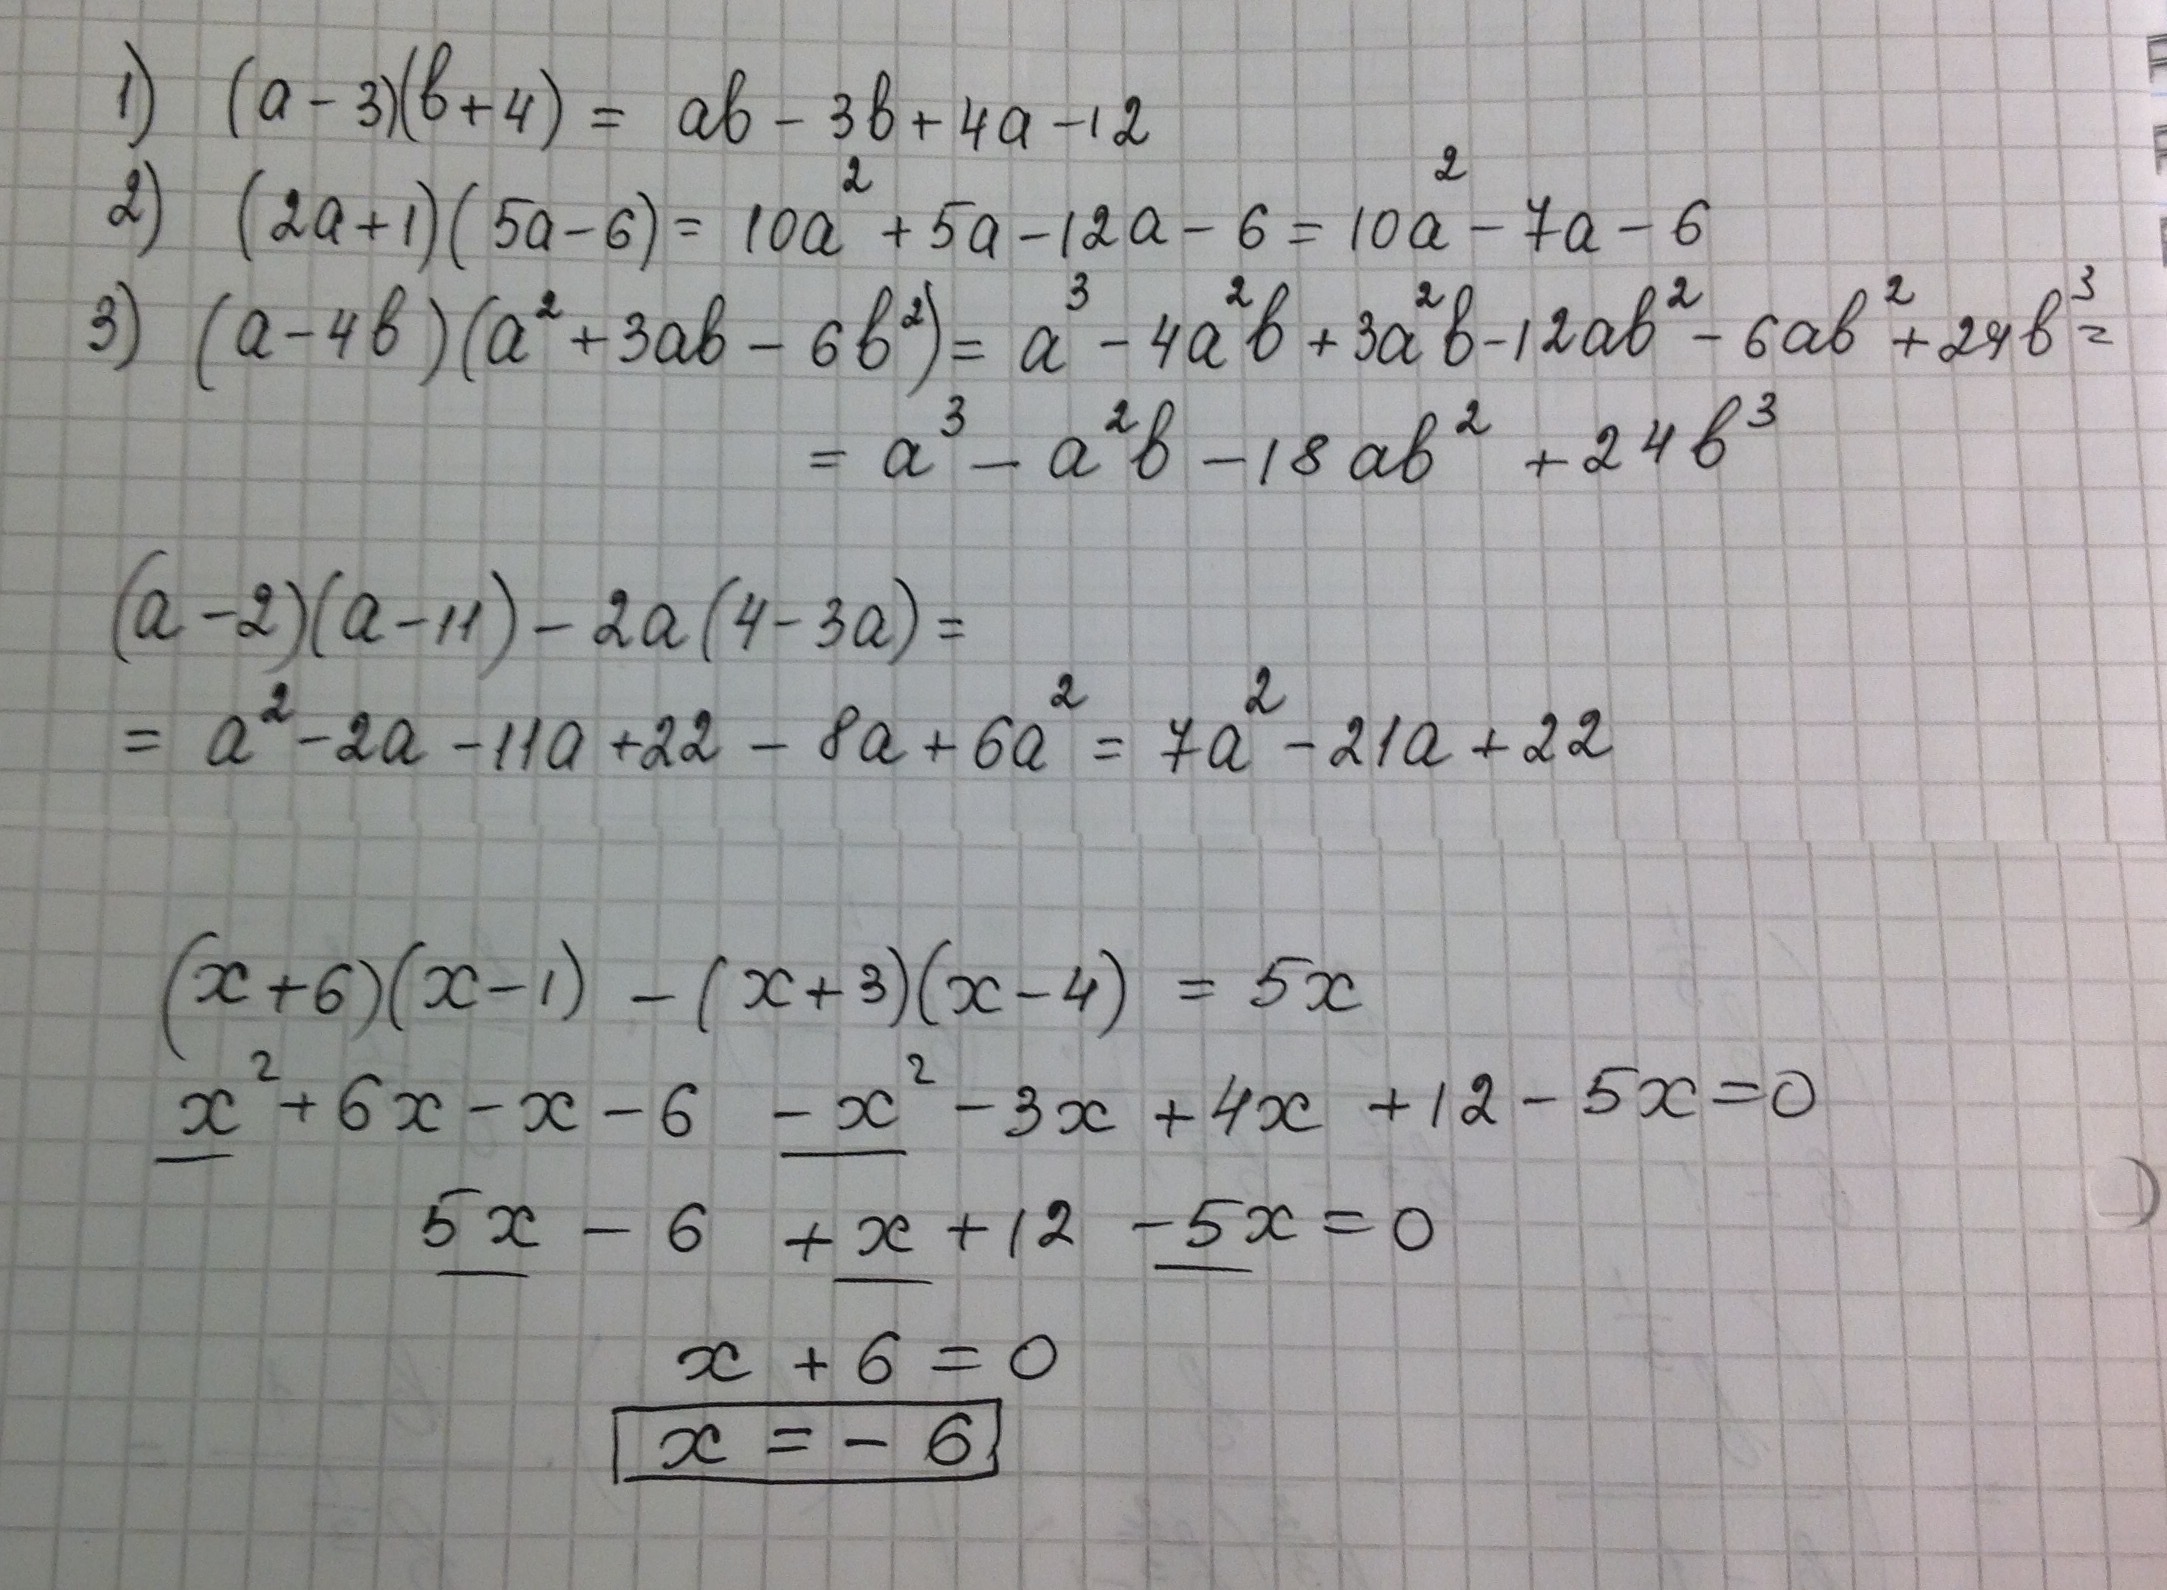 1) (a-3)(b+4) = ab - 3b + 4a - 12
2) (2a+1)(5a-6) = 10a² + 5a - 12a - 6 = 10a² - 7a - 6
3) (a-4b)(a²+3ab-6b²) = a³ - 4a²b + 3a²b - 12ab² - 6ab² + 24b³ =
= a³ - a²b - 18ab² + 24b³
(a-2)(a-11) - 2a(4-3a) =
= a² - 2a - 11a + 22 - 8a + 6a² = 7a² - 21a + 22
(x+6)(x-1) - (x+3)(x-4) = 5x
x² + 6x - x - 6 - x² - 3x + 4x + 12 - 5x = 0
5x - 6 + x + 12 - 5x = 0
x + 6 = 0
x = - 6